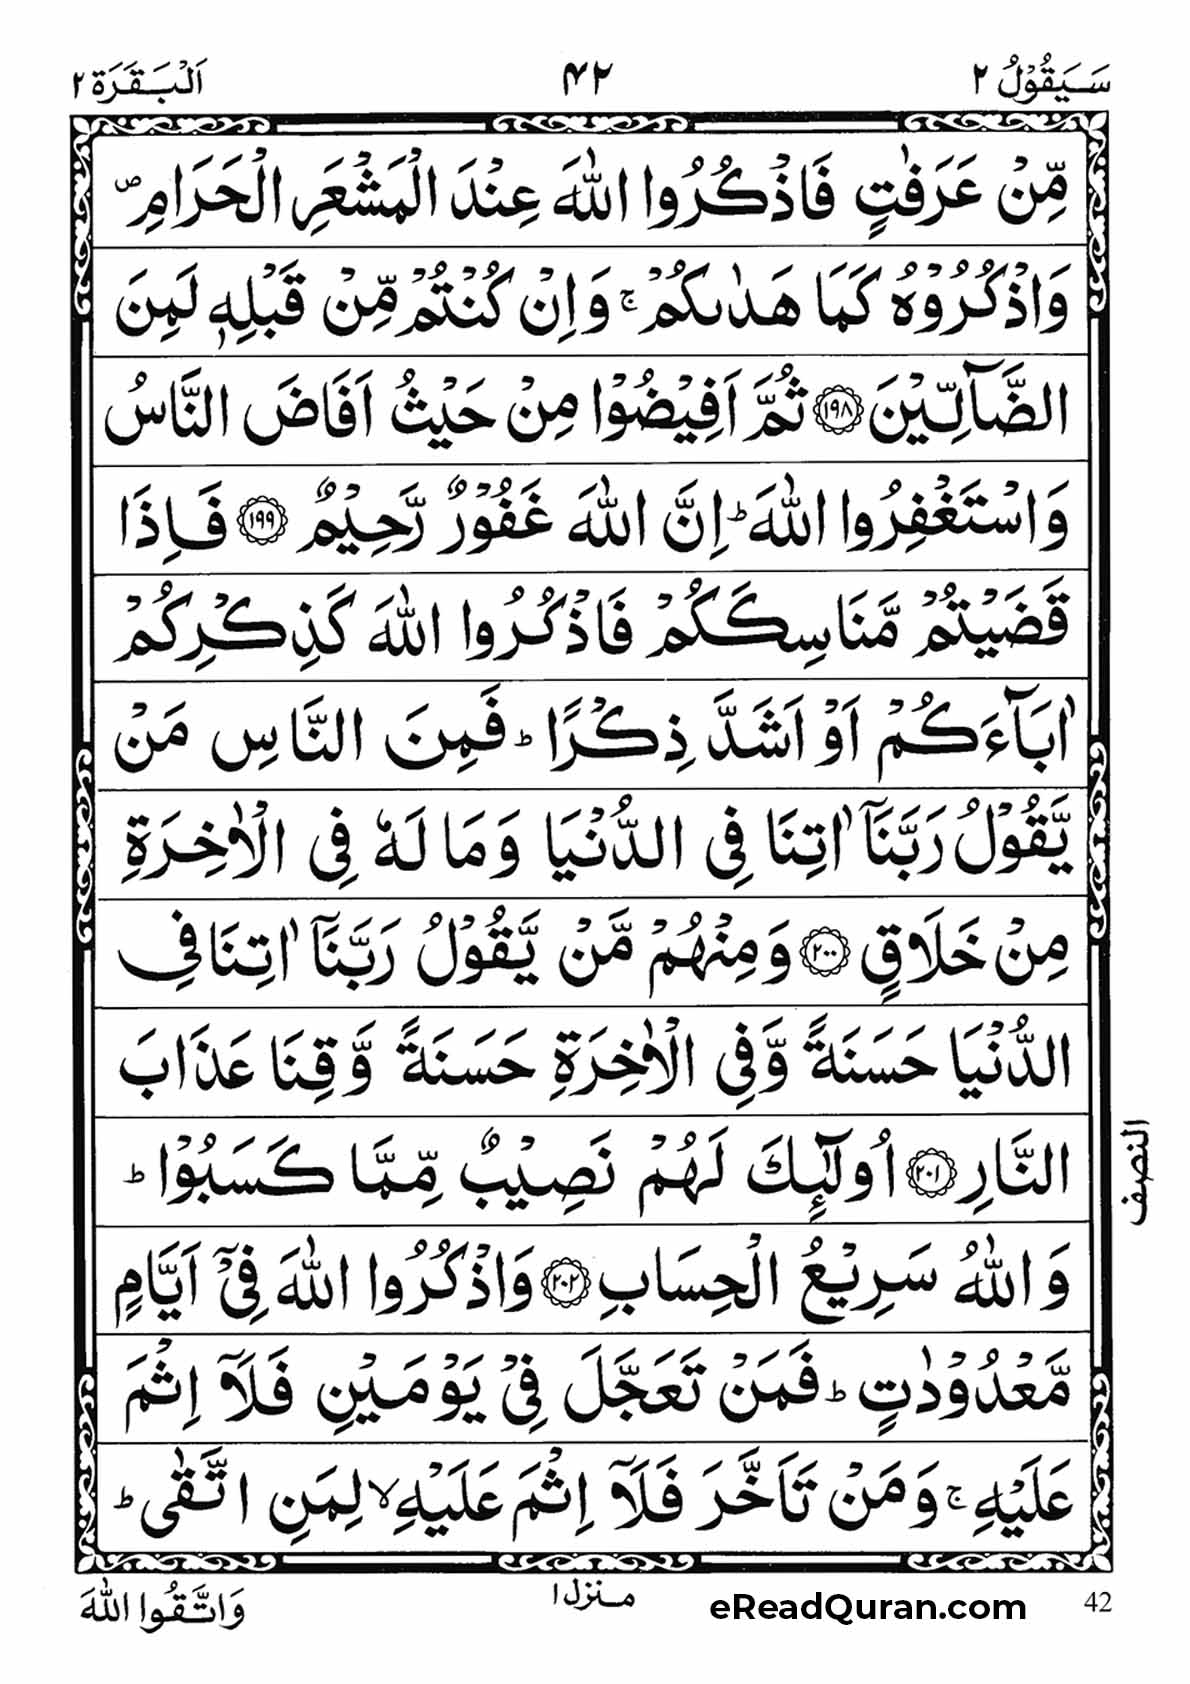 سَيَقُوْلُ ٢
٤٢
اَلْبَقَرَة ٢
مِّنْ عَرَفٰتٍ فَاذْكُرُوا اللّٰهَ عِنْدَ الْمَشْعَرِ الْحَرَامِ ۪
وَاذْكُرُوْهُ كَمَا هَدٰىكُمْ ۚ وَاِنْ كُنْتُمْ مِّنْ قَبْلِهٖ لَمِنَ
الضَّآلِّيْنَ ﴿١٩٨﴾ ثُمَّ اَفِيْضُوْا مِنْ حَيْثُ اَفَاضَ النَّاسُ
وَاسْتَغْفِرُوا اللّٰهَ ؕ اِنَّ اللّٰهَ غَفُوْرٌ رَّحِيْمٌ ﴿١٩٩﴾ فَاِذَا
قَضَيْتُمْ مَّنَاسِكَكُمْ فَاذْكُرُوا اللّٰهَ كَذِكْرِكُمْ
اٰبَآءَكُمْ اَوْ اَشَدَّ ذِكْرًا ؕ فَمِنَ النَّاسِ مَنْ
يَّقُوْلُ رَبَّنَاۤ اٰتِنَا فِى الدُّنْيَا وَمَا لَهٗ فِى الْاٰخِرَةِ
مِنْ خَلَاقٍ ﴿٢٠٠﴾ وَمِنْهُمْ مَّنْ يَّقُوْلُ رَبَّنَاۤ اٰتِنَا فِى
الدُّنْيَا حَسَنَةً وَّفِى الْاٰخِرَةِ حَسَنَةً وَّقِنَا عَذَابَ
النَّارِ ﴿٢٠١﴾ اُولٰٓئِكَ لَهُمْ نَصِيْبٌ مِّمَّا كَسَبُوْا ؕ
وَاللّٰهُ سَرِيْعُ الْحِسَابِ ﴿٢٠٢﴾ وَاذْكُرُوا اللّٰهَ فِىْۤ اَيَّامٍ
مَّعْدُوْدٰتٍ ؕ فَمَنْ تَعَجَّلَ فِىْ يَوْمَيْنِ فَلَاۤ اِثْمَ
عَلَيْهِ ۚ وَمَنْ تَاَخَّرَ فَلَاۤ اِثْمَ عَلَيْهِ ۙ لِمَنِ اتَّقٰى ؕ
النصف
42
eReadQuran.com
منزل ١
وَاتَّقُوا اللّٰهَ